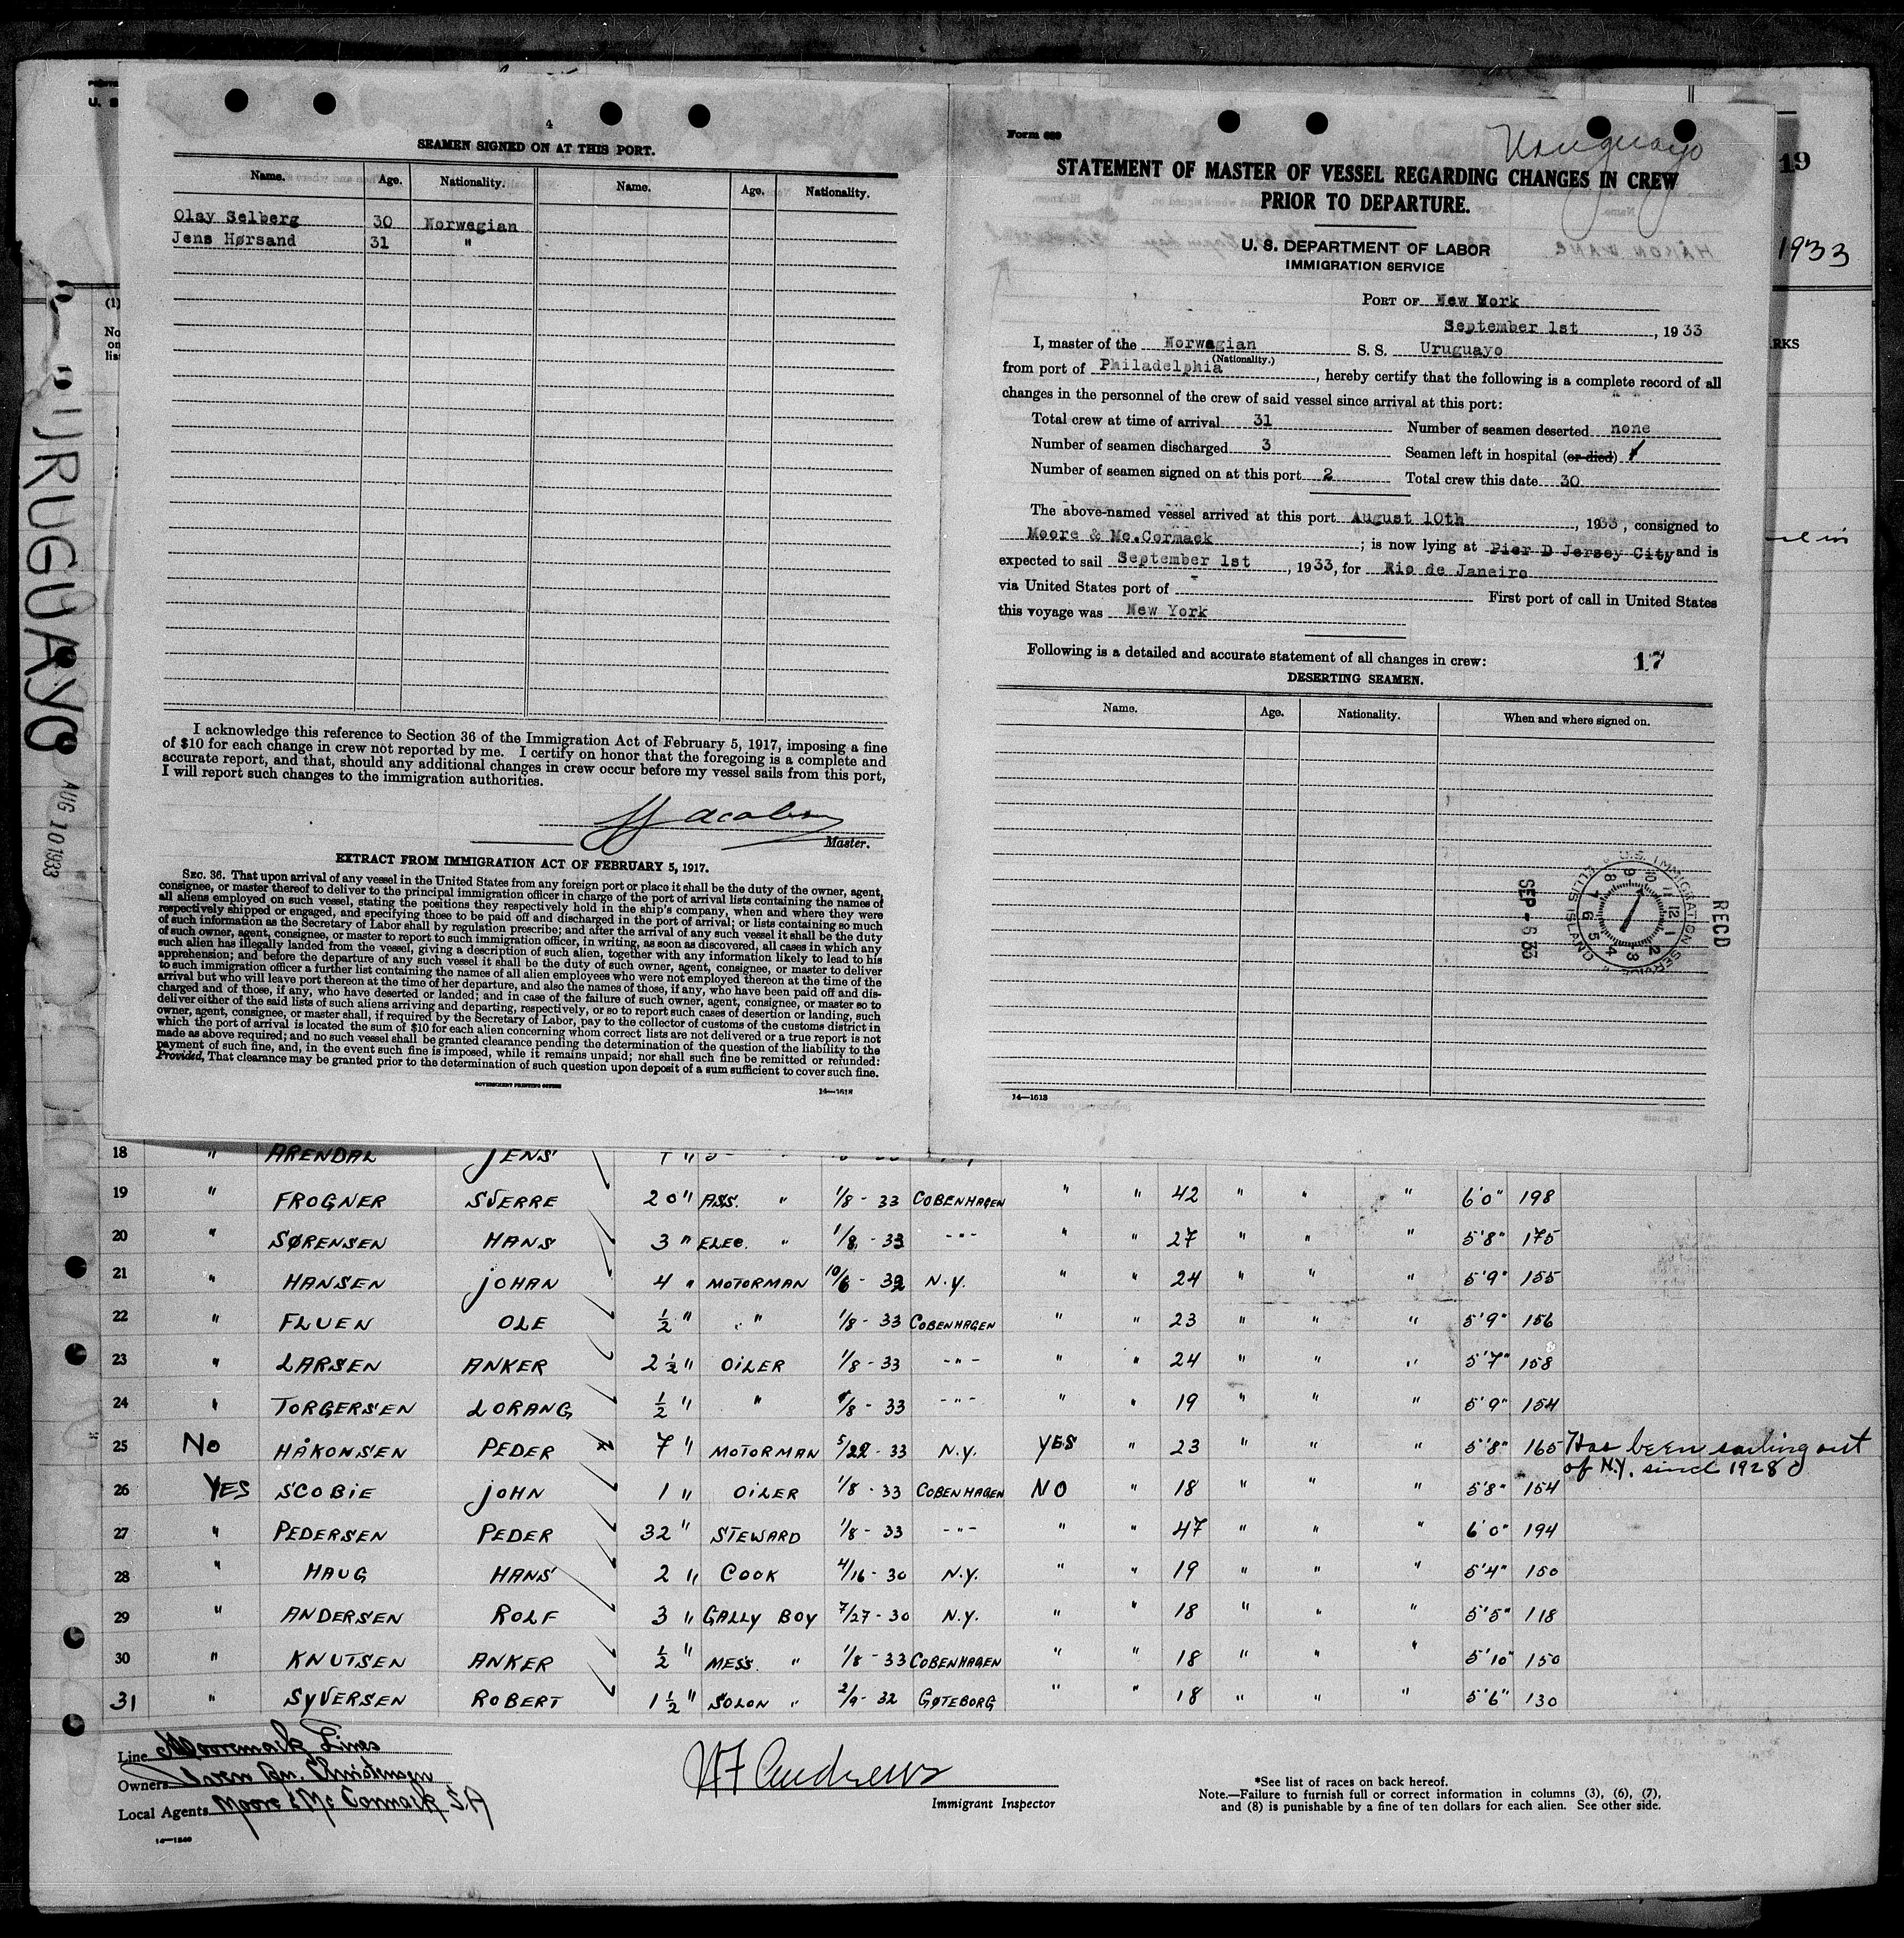 4
SEAMEN SIGNED ON AT THIS PORT.
Name. Age. Nationality. Name. Age. Nationality.
Olay Selberg 30 Norwegian
Jens Hørsand 31 "
I acknowledge this reference to Section 36 of the Immigration Act of February 5, 1917, imposing a fine
of $10 for each change in crew not reported by me. I certify on honor that the foregoing is a complete and
accurate report, and that, should any additional changes in crew occur before my vessel sails from this port,
I will report such changes to the immigration authorities.
Master.
EXTRACT FROM IMMIGRATION ACT OF FEBRUARY 5, 1917.
SEC. 36. That upon arrival of any vessel in the United States from any foreign port or place it shall be the duty of the owner, agent,
consignee, or master thereof to deliver to the principal immigration officer in charge of the port of arrival lists containing the names of
all aliens employed on such vessel, stating the positions they respectively hold in the ship's company, when and where they were
respectively shipped or engaged, and specifying those to be paid off and discharged in the port of arrival; or lists containing so much
of such information as the Secretary of Labor shall by regulation prescribe; and after the arrival of any such vessel it shall be the duty
of such owner, agent, consignee, or master to report to such immigration officer, in writing, as soon as discovered, all cases in which any
such alien has illegally landed from the vessel, giving a description of such alien, together with any information likely to lead to his
apprehension; and before the departure of any such vessel it shall be the duty of such owner, agent, consignee, or master to deliver
to such immigration officer a further list containing the names of all alien employees who were not employed thereon at the time of the
arrival but who will leave port thereon at the time of her departure, and also the names of those, if any, who have been paid off and dis-
charged and of those, if any, who have deserted or landed; and in case of the failure of such owner, agent, consignee, or master so to
deliver either of the said lists of such aliens arriving and departing, respectively, or so to report such cases of desertion or landing, such
owner, agent, consignee, or master shall, if required by the Secretary of Labor, pay to the collector of customs of the customs district in
which the port of arrival is located the sum of $10 for each alien concerning whom correct lists are not delivered or a true report is not
made as above required; and no such vessel shall be granted clearance pending the determination of the question of the liability to the
payment of such fine, and, in the event such fine is imposed, while it remains unpaid; nor shall such fine be remitted or refunded:
Provided, That clearance may be granted prior to the determination of such question upon deposit of a sum sufficient to cover such fine.
GOVERNMENT PRINTING OFFICE
14—1618
Form 689
Uruguayo
STATEMENT OF MASTER OF VESSEL REGARDING CHANGES IN CREW
PRIOR TO DEPARTURE.
U. S. DEPARTMENT OF LABOR
IMMIGRATION SERVICE
PORT OF New York
September 1st, 1933
I, master of the Norwegian S. S. Uruguayo
(Nationality.)
from port of Philadelphia, hereby certify that the following is a complete record of all
changes in the personnel of the crew of said vessel since arrival at this port:
Total crew at time of arrival 31 Number of seamen deserted none
Number of seamen discharged 3 Seamen left in hospital (or died)
Number of seamen signed on at this port 2 Total crew this date 30
The above-named vessel arrived at this port August 10th, 1933, consigned to
Moore & Mc.Cormack; is now lying at Pier D Jersey City and is
expected to sail September 1st, 1933, for Rio de Janeiro
via United States port of - First port of call in United States
this voyage was New York
Following is a detailed and accurate statement of all changes in crew: 17
DESERTING SEAMEN.
Name. Age. Nationality. When and where signed on.
RECD
U.S. IMMIGRATION SERVICE
ELLIS ISLAND
12 1 2 3 4 5 6 7 8 9 10 11
SEP - 6 33
14—1618
19
1933
RKS
U. S
(1)
No
on
lis
URUGUAYO
AUG 10 1933
18 " ARENDAL JENS
19 " FROGNER SVERRE 20 " ASS. " 1/8 - 33 COBENHAGEN " " 42 " " " 6'0" 198
20 " SØRENSEN HANS 3 " ELEC. " 1/8 - 33 -"- " " 27 " " " 5'8" 175
21 " HANSEN JOHAN 4 " MOTORMAN 10/6 - 32 N.Y. " " 24 " " " 5'9" 155
22 " FLUEN OLE 1/2 " " 1/8 - 33 COBENHAGEN " " 23 " " " 5'9" 156
23 " LARSEN ANKER 2 1/2 " OILER 1/8 - 33 -"- " " 24 " " " 5'7" 158
24 " TORGERSEN LORANG 1/2 " " 1/8 - 33 -"- " " 19 " " " 5'9" 154
25 NO HÅKONSEN PEDER 7 " MOTORMAN 5/22 - 33 N.Y. YES " 23 " " " 5'8" 165 Has been sailing out
of N.Y. since 1928
26 YES SCOBIE JOHN 1 " OILER 1/8 - 33 COBENHAGEN NO " 18 " " " 5'8" 154
27 " PEDERSEN PEDER 32 " STEWARD 1/8 - 33 -"- " " 47 " " " 6'0" 194
28 " HAUG HANS 2 " COOK 4/16 - 30 N.Y. " " 19 " " " 5'4" 150
29 " ANDERSEN ROLF 3 " GALLY BOY 7/27 - 30 N.Y. " " 18 " " " 5'5" 118
30 " KNUTSEN ANKER 1/2 " MESS. " 1/8 - 33 COBENHAGEN " " 18 " " " 5'10" 150
31 " SYVERSEN ROBERT 1 1/2 " SOLON " 2/9 - 32 GØTEBORG " " 18 " " " 5'6" 130
Line Mooremack Lines
Owners Søren Chr. Christensen
Local Agents Moore & Mc Cormack S.A
14—1240
HF Andrews
Immigrant Inspector
*See list of races on back hereof.
Note.—Failure to furnish full or correct information in columns (3), (6), (7),
and (8) is punishable by a fine of ten dollars for each alien. See other side.